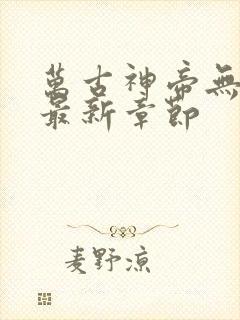 萬古神帝無
最新章節
麦野凉